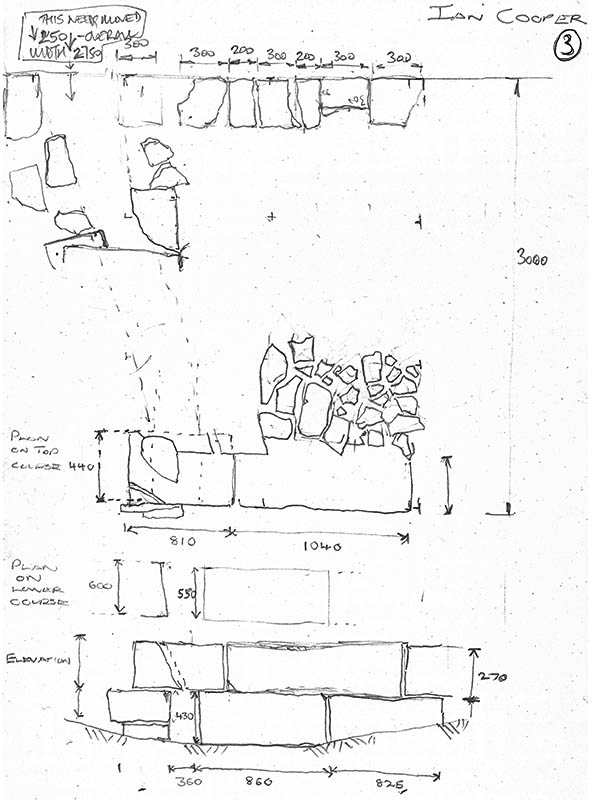 THIS NEEDS MOVED
↓ 250 - OVERALL
WIDTH 2750
IAN COOPER
3
380
300
200
300
200
300
300
3000
PLAN
ON TOP
COURSE 440
810
1040
PLAN
ON
LOWER
COURSE
600
550
ELEVATION
270
430
360
860
825